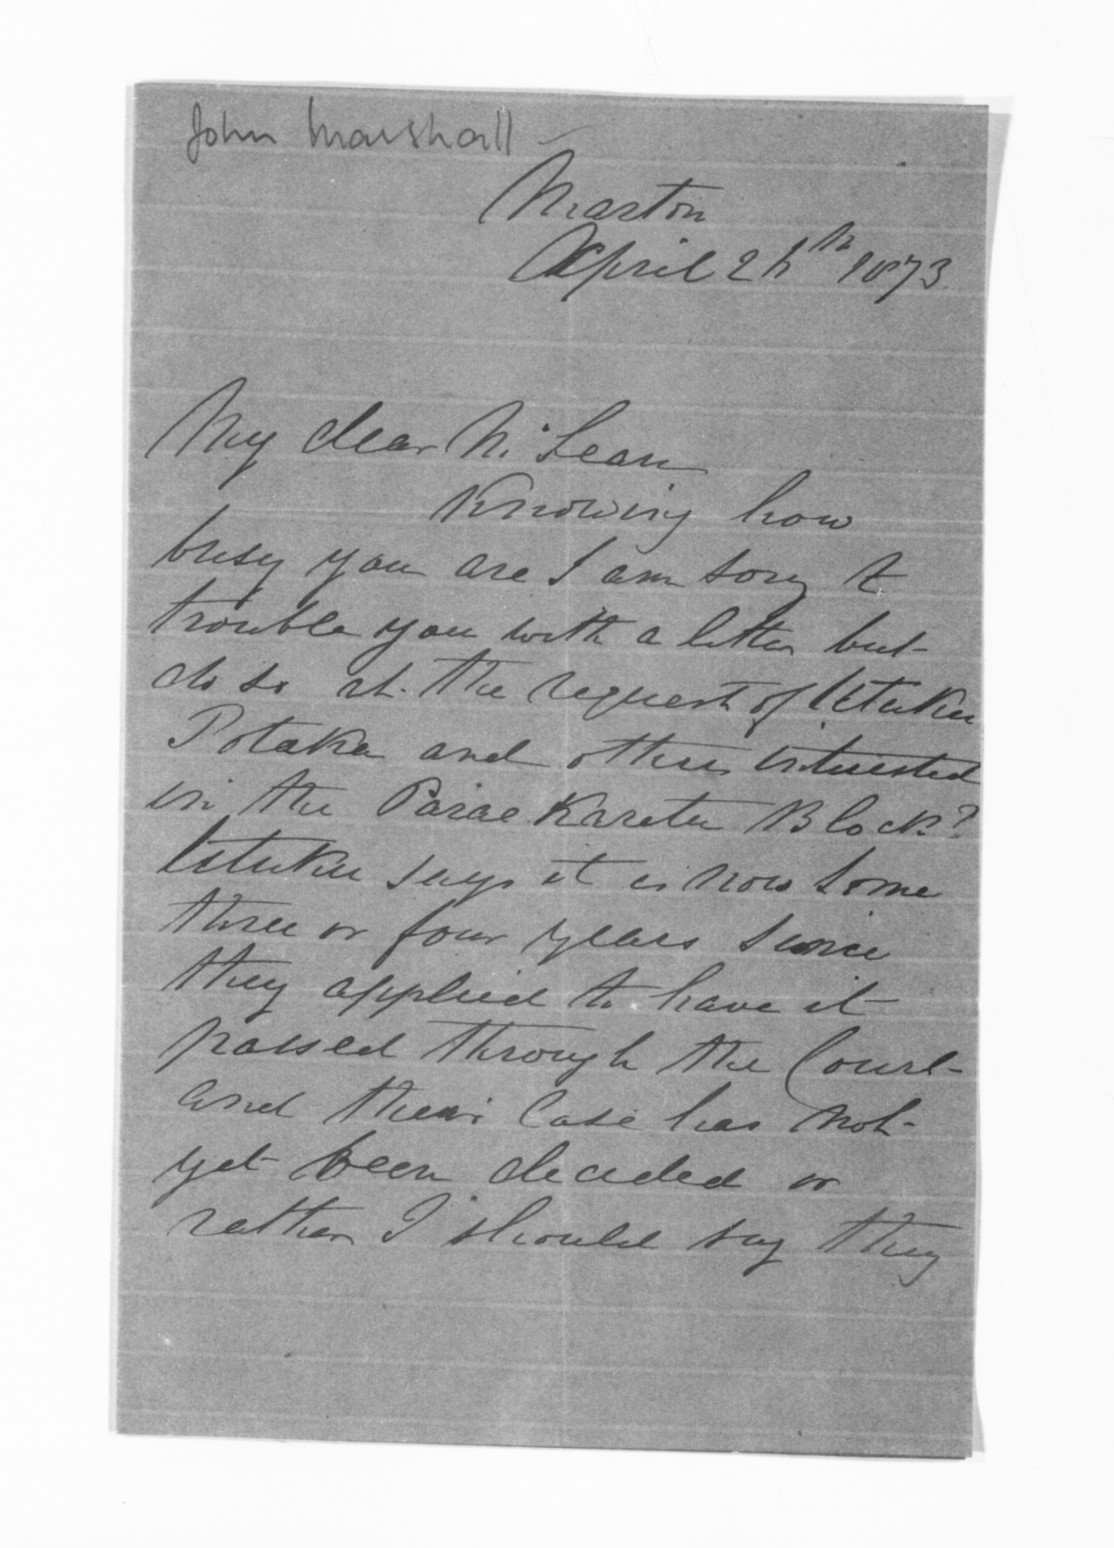 John Marshall
Marton
April 26th 1873
My dear McLean
Knowing how
busy you are I am sorry to
trouble you with a letter but
do so at the request of Utuku
Potaka and others interested
in the Parae Karetu Block?
Utuku says it is now some
three or four years since
they applied to have it
passed through the Court
and their case has not
yet been decided or
rather I should say they